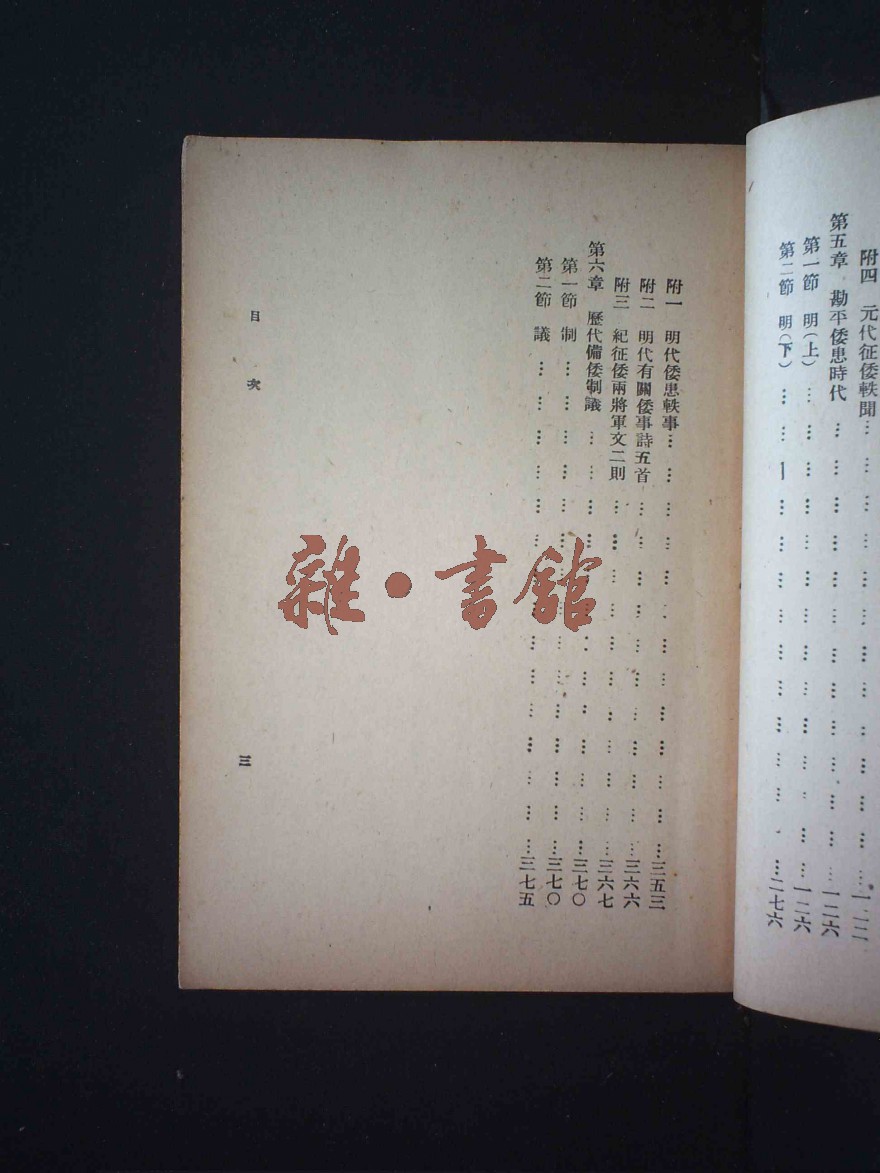 附四 元代征倭軼聞……一二二
第五章 勘平倭患時代……一二六
第一節 明(上)……一二六
第二節 明(下)……二七六
附一 明代倭患軼事……三五三
附二 明代有關倭事詩五首……三六六
附三 紀征倭兩將軍文二則……三六七
第六章 歷代備倭制議……三七〇
第一節 制……三七〇
第二節 議……三七五
目次
三
雜·書館